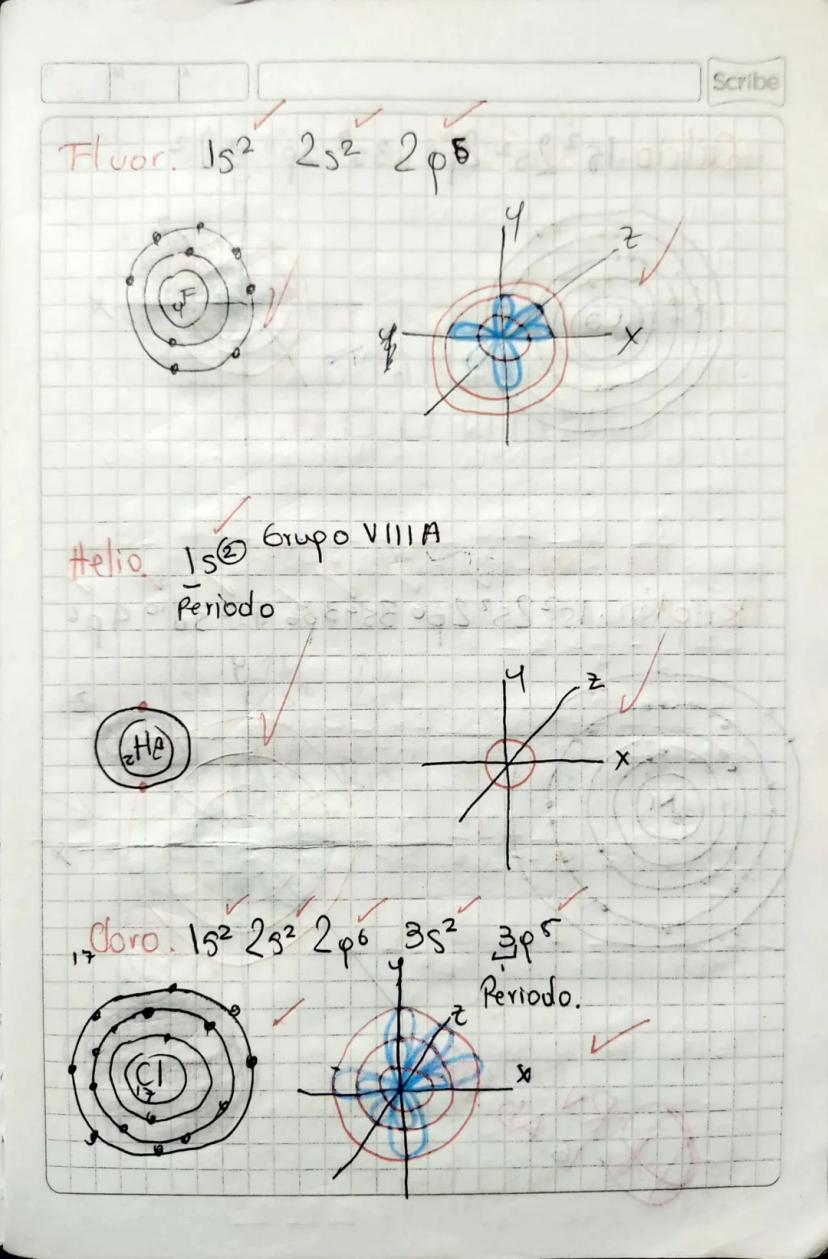 Scribe
Fluor. 1s² 2s² 2p⁵
y
z
F
x
Helio. 1s② Grupo VIIIA
Periodo
y
z
₂He
x
₁₇Cloro. 1s² 2s² 2p⁶ 3s² 3p⁵
y
Periodo.
z
Cl
17
x